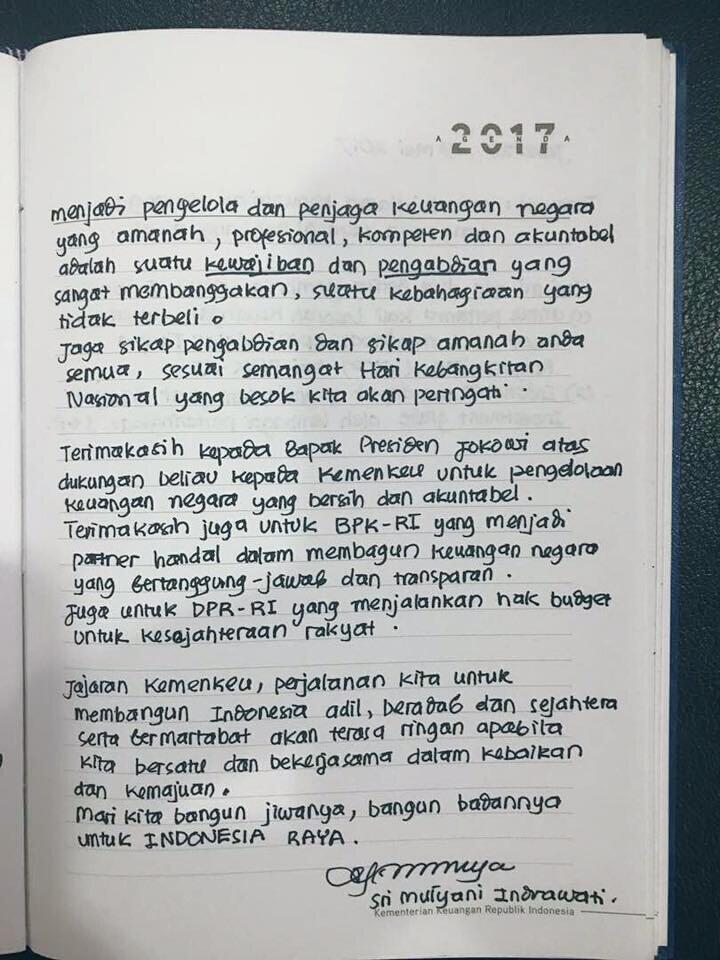 AGENDA
2017
menjadi pengelola dan penjaga keuangan negara
yang amanah, profesional, kompeten dan akuntabel
adalah suatu kewajiban dan pengabdian yang
sangat membanggakan, suatu kebahagiaan yang
tidak terbeli.
Jaga sikap pengabdian dan sikap amanah anda
semua, sesuai semangat Hari Kebangkitan
Nasional yang besok kita akan peringati.
Terimakasih kepada Bapak Presiden Jokowi atas
dukungan beliau kepada Kemenkeu untuk pengelolaan
keuangan negara yang bersih dan akuntabel.
Terimakasih juga untuk BPK-RI yang menjadi
partner handal dalam membagun keuangan negara
yang bertanggung-jawab dan transparan.
Juga untuk DPR-RI yang menjalankan hak budget
untuk kesejahteraan rakyat.
Jajaran Kemenkeu, perjalanan kita untuk
membangun Indonesia adil, beradab dan sejahtera
serta bermartabat akan terasa ringan apabila
kita bersatu dan bekerjasama dalam kebaikan
dan kemajuan.
Mari kita bangun jiwanya, bangun badannya
untuk INDONESIA RAYA.
Sri Mulyani Indrawati.
Kementerian Keuangan Republik Indonesia